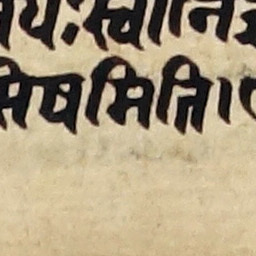 यः स्वानि
सिषमिति।